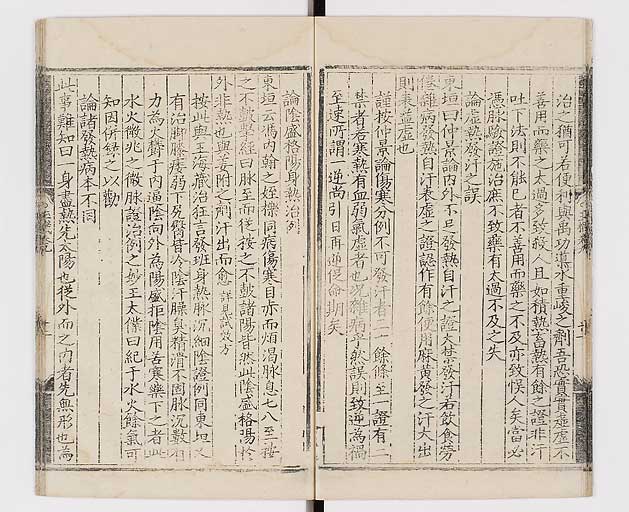 治之猶可若便利與禹功導水重峻之劑吾恐實實虛虛不
善用而藥之太過多致殺人且如積熱畜熱有餘之證非汗
吐下法則不能已者不善用而藥之不及亦致悞人矣當必
憑脉驗證施治庶不致藥有太過不及之失
論虛熱發汗之誤
東垣曰仲景論內外不足發熱自汗之證大禁發汗若飲食勞
倦雜病發熱自汗表虛之證誤作有餘便用麻黃發之汗大出
則表益虛也
謹按仲景論傷寒分例不可發汗者二一餘條至一證有二
禁者若寒熱有血弱氣虛者也况雜病乎然誤則致逆為禍
至速所謂一逆尚引日再逆促命期矣
論陰盛格陽身熱治例
東垣云馮內翰之姪櫟同病傷寒目赤而煩渴脉息七八至按
之不鼓擊經曰脉至而從按之不鼓諸陽皆然此陰盛格陽於
外非熱也與姜附之劑汗出而愈詳見試效方
按此與王海藏治狂言發班身熱脉沉細陰證例同東垣又
有治脚膝痿弱下尻臀皆冷陰汗臊臭精滑不固脉沉數有
力為火欝于內逼陰向外為陽盛拒陰用苦寒藥下之者此
水火徵兆之微脉證治例之妙王太僕曰紀于水火餘氣可
知因併錄之以勸
論諸發熱病本不同
此事難知曰一身盡熱先太陽也從外而之內者先無形也為